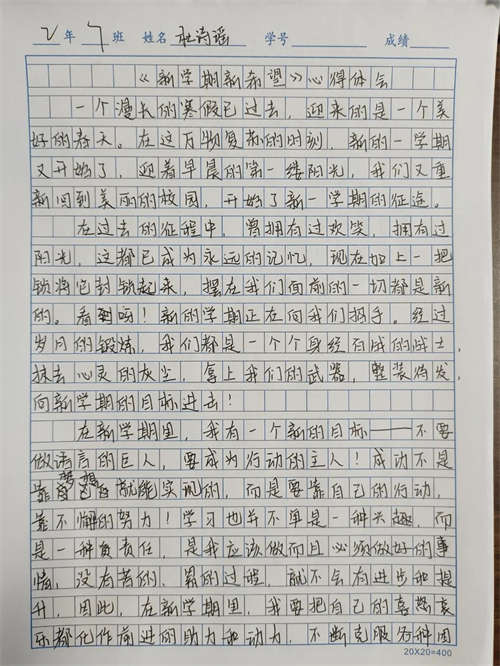 2年7班 姓名杜诗瑶 学号 成绩
《新学期新希望》心得体会
一个漫长的寒假已过去,迎来的是一个美
好的春天。在这万物复苏的时刻,新的一学期
又开始了,迎着早晨的第一缕阳光,我们又重
新回到美丽的校园,开始了新一学期的征途。
在过去的征程中,曾拥有过欢笑,拥有过
阳光,这都已成为永远的记忆,现在加上一把
锁将它封锁起来,摆在我们面前的一切都是新
的。看到呀!新的学期正在向我们招手。经过
岁月的锻炼,我们都是一个个身经百战的战士,
抹去心灵的灰尘,拿上我们的武器,整装待发,
向新学期的目标进去!
在新学期里,我有一个新的目标——不要
做语言的巨人,要成为行动的主人!成功不是
靠梦想就能实现的,而是要靠自己的行动,
靠不懈的努力!学习也并不单是一种兴趣,而
是一种负责任,是我应该做而且必须做好的事
情,没有苦的、累的过程,就不会有进步和提
升,因此,在新学期里,我要把自己的喜怒哀
乐都化作前进的助力和动力,不断克服各种困
20X20=400